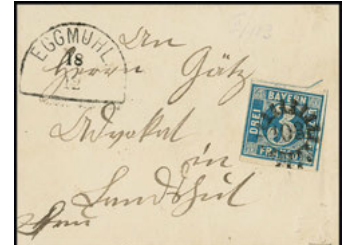 EGGMÜHL.
18
12
An
Herrn Götz
Advokat
in
Landshut
frei
BAYERN
DREI
FRANCO